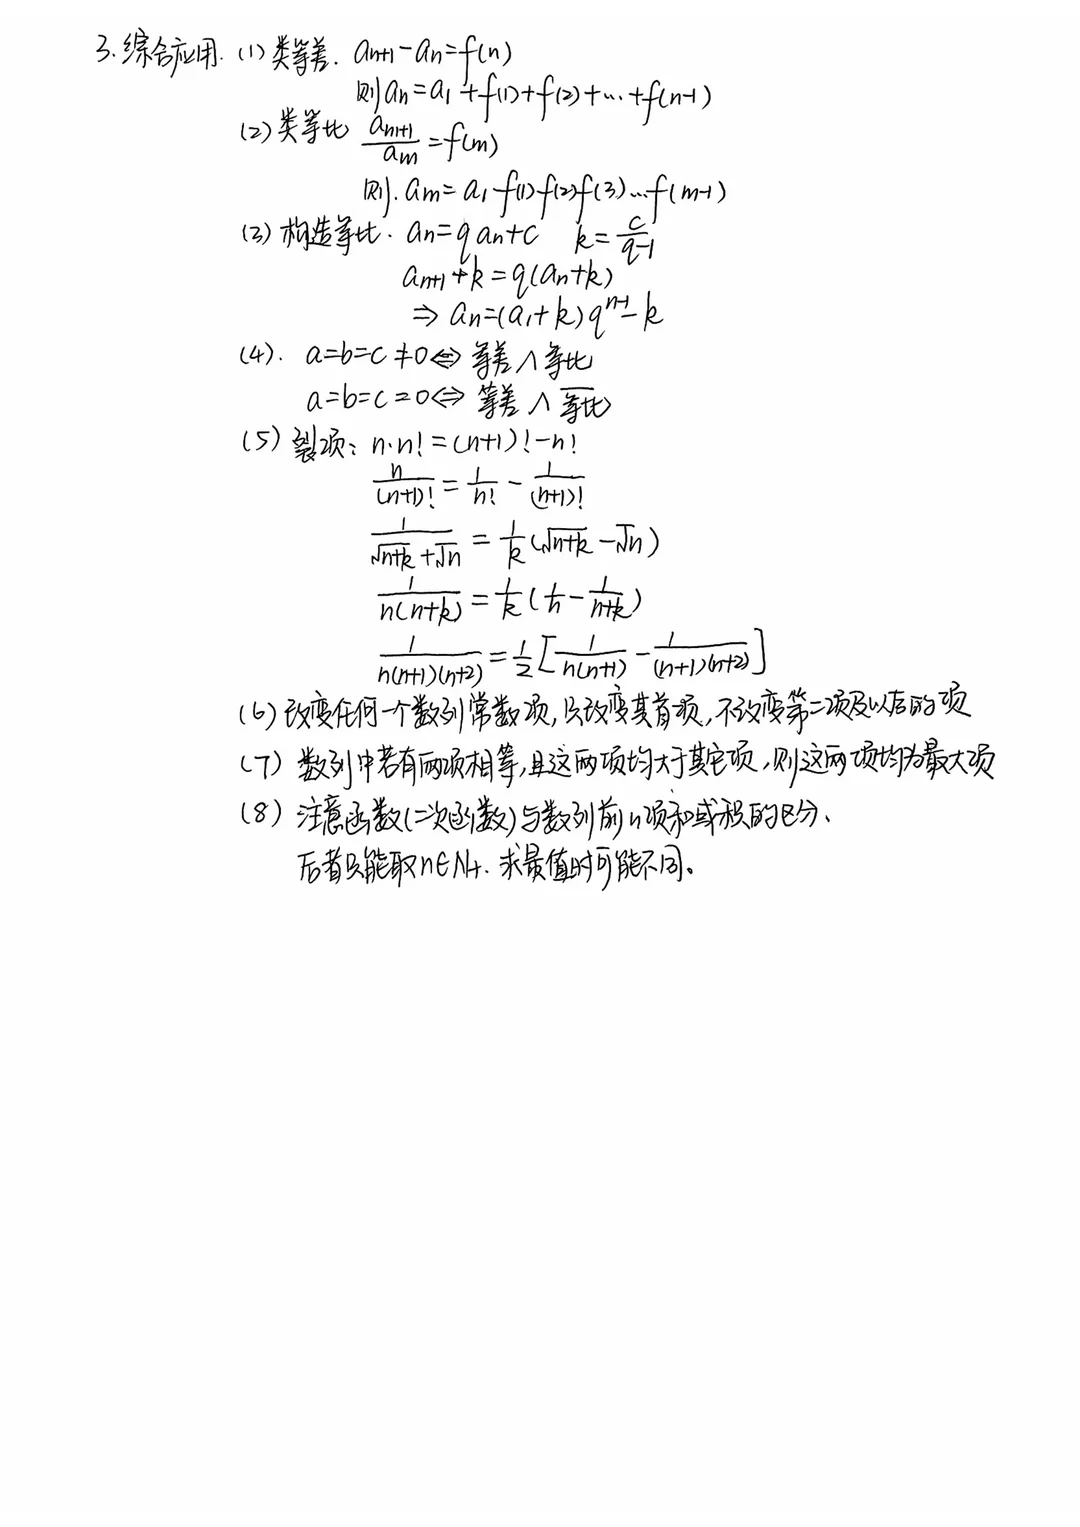 3.综合应用. (1) 类等差. aₙ₊₁-aₙ=f(n)
则aₙ=a₁+f(1)+f(2)+…+f(n-1)
(2) 类等比 aₘ₊₁/aₘ=f(m)
则. aₘ=a₁·f(1)f(2)f(3)…f(m-1)
(3) 构造等比. aₙ=qaₙ+c k=c/(q-1)
aₙ₊₁+k=q(aₙ+k)
⇒ aₙ=(a₁+k)qⁿ⁻¹-k
(4). a=b=c≠0⇔ 等差∧等比
a=b=c=0⇔ 等差∧ \overline{等比}
(5) 裂项: n·n!=(n+1)!-n!
n/(n+1)! = 1/n! - 1/(n+1)!
1/(√(n+k)+√n) = 1/k(√(n+k)-√n)
1/(n(n+k)) = 1/k(1/n-1/(n+k))
1/(n(n+1)(n+2)) = 1/2[1/(n(n+1))-1/((n+1)(n+2))]
(6) 改变任何一个数列常数项,只改变其首项,不改变第二项及以后的项
(7) 数列中若有两项相等,且这两项均大于其它项,则这两项均为最大项
(8) 注意函数(二次函数)与数列前n项和或积的区分、
后者只能取n∈N₊. 求最值时可能不同。